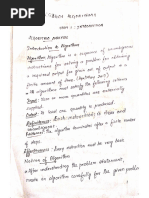 UNIT I - INTRODUCTION
Algorithm analysis
Introduction to Algorithm
Algorithm: Algorithm is a sequence of unambiguous
instructions for solving a problem for obtaining
a required output for given set of input in a
finite amount of time.
All algorithms must satisfy the following criteria
Input: Zero or more quantities are externally
Output: At least one quantity is produced.
Definiteness: Each instruction is clear and
Finiteness: The algorithm terminates after a finite number
of steps
Effectiveness: Every instruction must be very basic
Notion of Algorithm
After understanding the problem statement,
made an algorithm carefully for the given problem